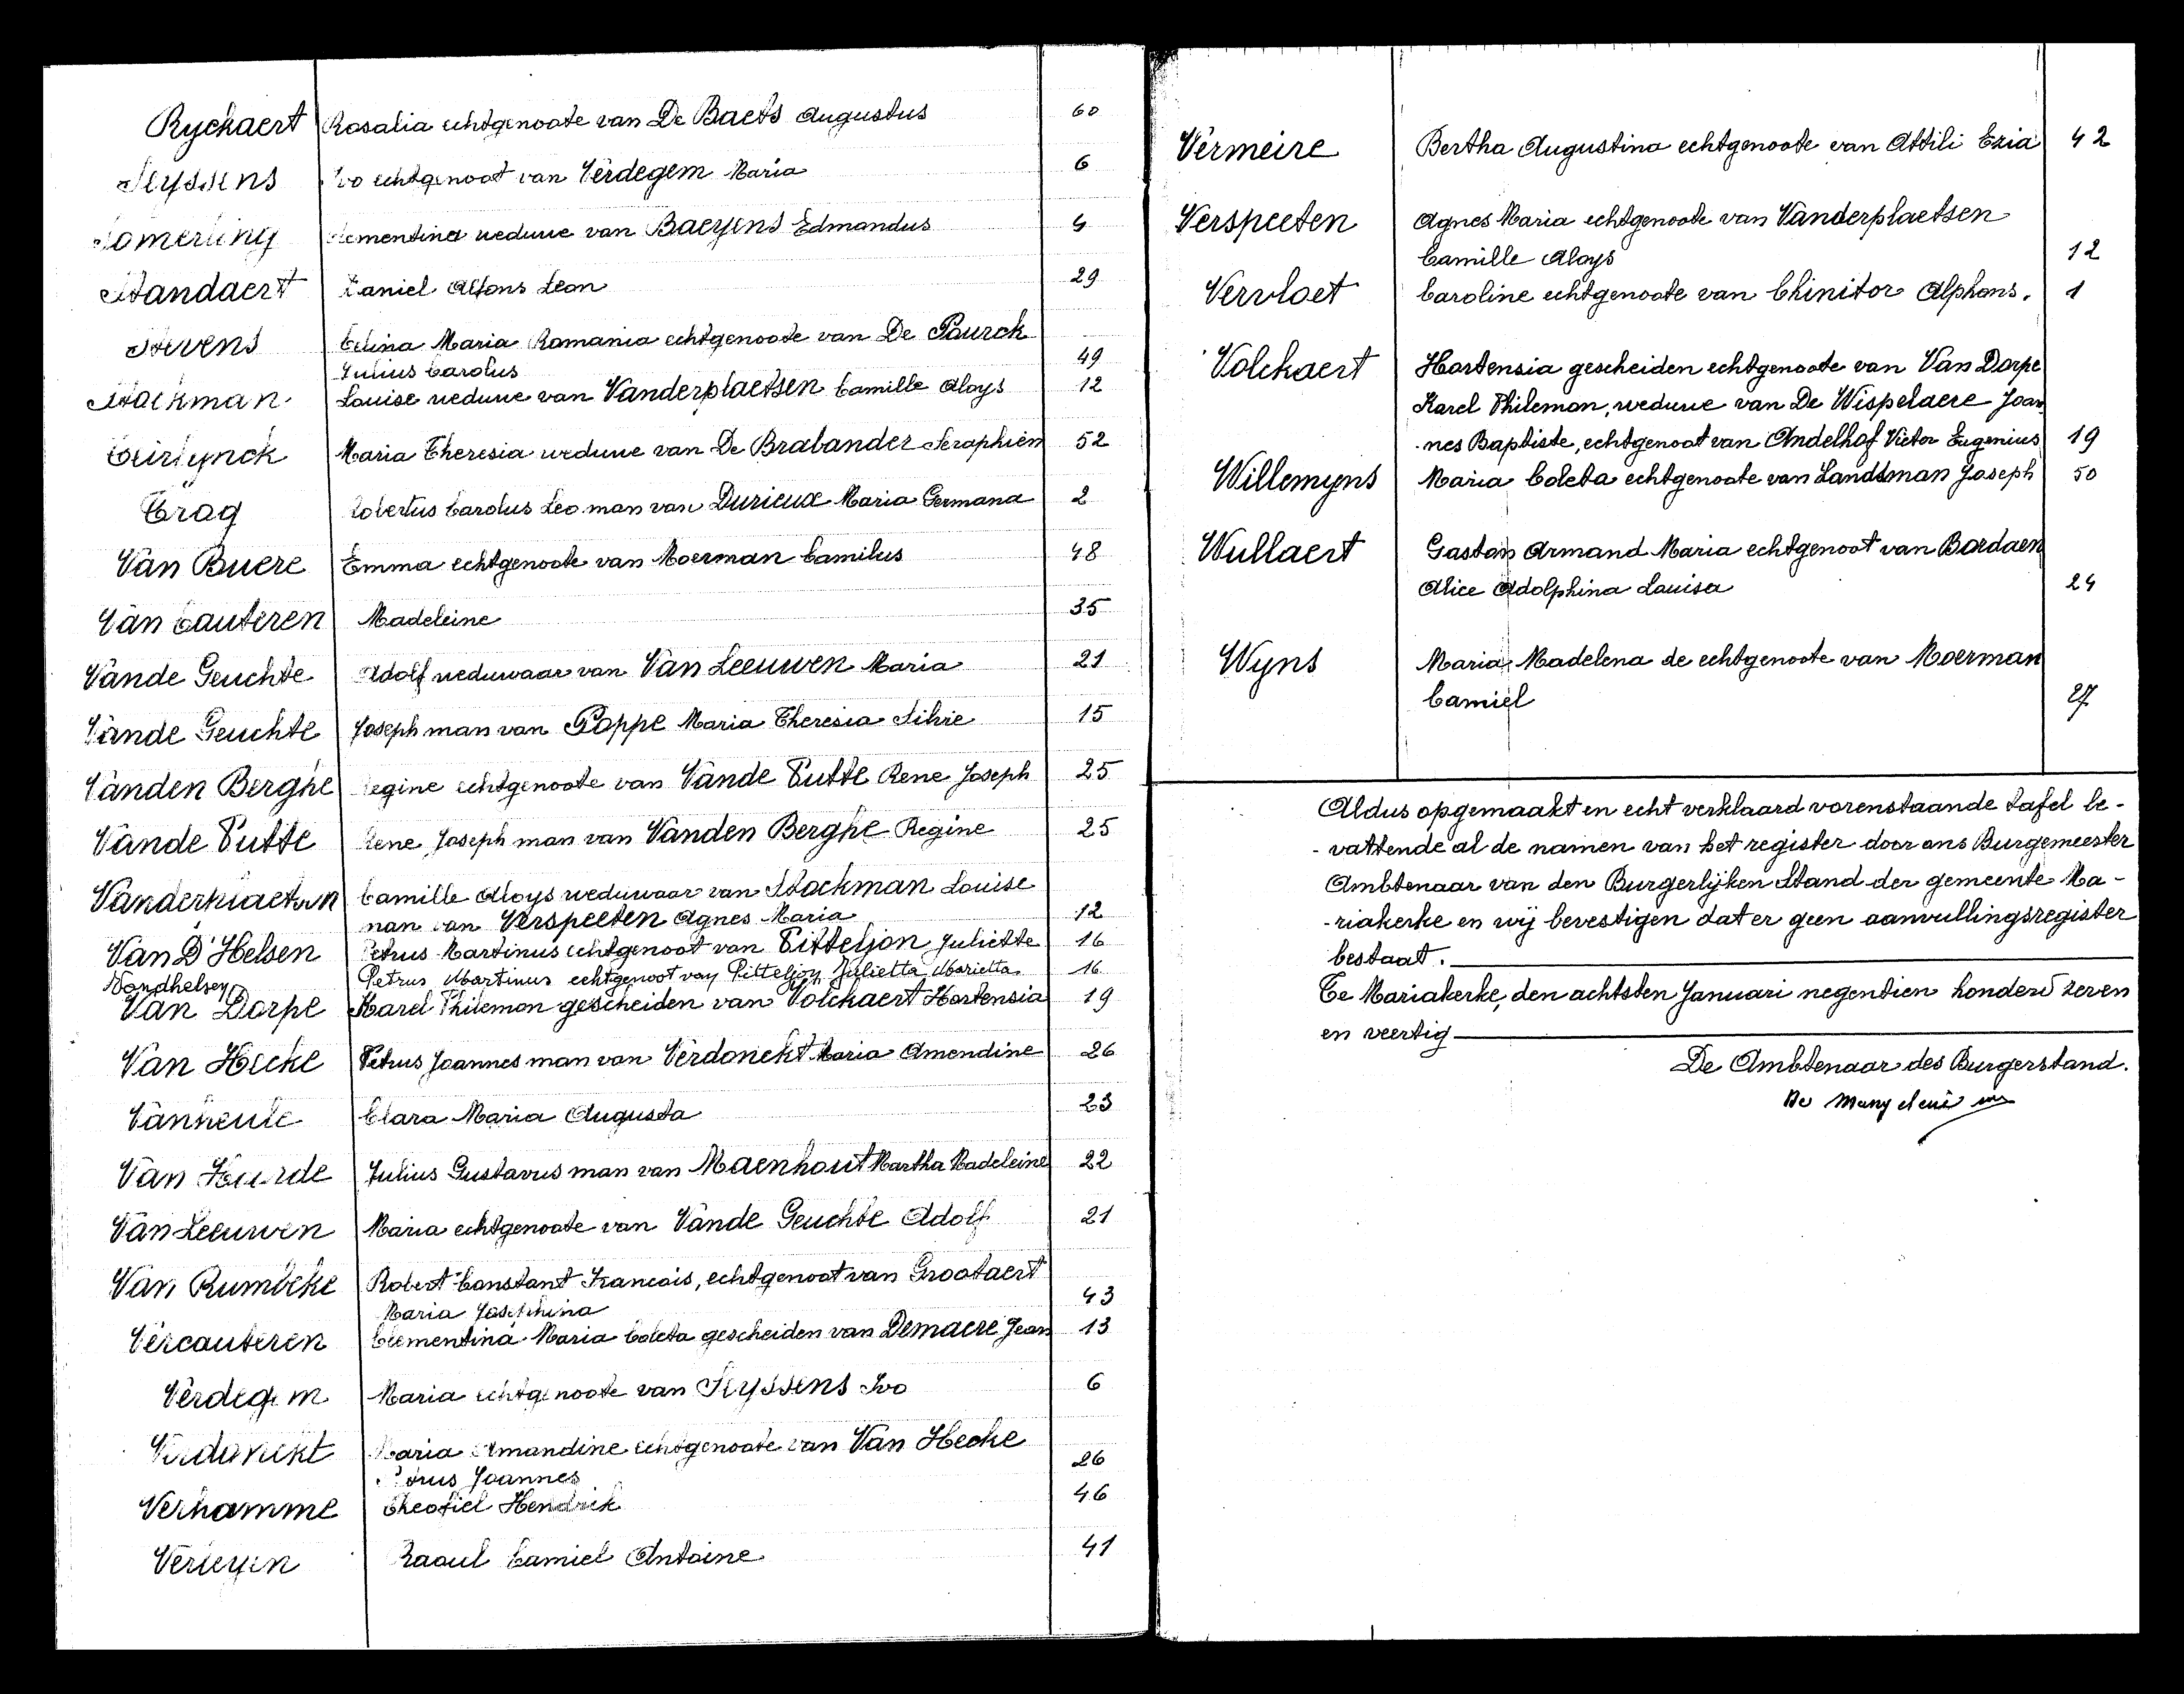 Ryckaert Rosalia echtgenoote van De Baets Augustus 60
Seyssens Ivo echtgenoot van Verdegem Maria 6
Somerling Clementina weduwe van Baeyens Edmandus 4
Standaert Daniel Alfons Leon 29
Stevens Celina Maria Romania echtgenoote van De Paurck
Julius Carolus 49
Stockman Louise weduwe van Vanderplaetsen Camille Aloys 12
Teirlynck Maria Theresia weduwe van De Brabander Seraphien 52
Trog Robertus Carolus Leo man van Durieux Maria Germana 2
Van Buere Emma echtgenoote van Moerman Camilus 48
Van Cauteren Madeleine 35
Vande Geuchte Adolf weduwaar van Van Leeuwen Maria 21
Vande Geuchte Joseph man van Poppe Maria Theresia Silvie 15
Vanden Berghe Regine echtgenoote van Vande Putte Rene Joseph 25
Vande Putte Rene Joseph man van Vanden Berghe Regine 25
Vanderplaetsen Camille Aloys weduwaar van Stockman Louise
man van Verspeeten Agnes Maria 12
Van D'Helsen Petrus Martinus echtgenoot van Pitteljon Juliette 16
Vandhelsen Petrus Martinus echtgenoot van Pitteljon Julietta Marietta 16
Van Dorpe Karel Philemon gescheiden van Volckaert Hortensia 19
Van Hecke Petrus Joannes man van Verdonckt Maria Amendine 26
Vanheule Clara Maria Augusta 23
Van Julius Gustavus man van Maenhout Martha Madeleine 22
Van Leeuwen Maria echtgenoote van Vande Geuchte Adolf 21
Van Rumbeke Robert Constant Francois, echtgenoot van Grootaert
Maria Josephina 43
Vercauteren Clementina Maria Coleta gescheiden van Demaere Jean 13
Verdegem Maria echtgenoote van Seyssens Ivo 6
Verdonckt Maria Amandine echtgenoote van Van Hecke
Petrus Joannes 26
Verhamme Theofiel Hendrik 46
Verleyen Raoul Camiel Antoine 41
Vermeire Bertha Augustina echtgenoote van Attili Ezia 42
Verspeeten Agnes Maria echtgenoote van Vanderplaetsen
Camille Aloys 12
Vervloet Caroline echtgenoote van Chinitor Alphons. 1
Volckaert Hortensia gescheiden echtgenoote van Van Dorpe
Karel Philemon, weduwe van De Wispelaere Joan
nes Baptiste, echtgenoot van Andelhof Victor Eugenius 19
Willemyns Maria Coleta echtgenoote van Landsman Joseph 50
Wullaert Gaston Armand Maria echtgenoot van Bordaen
Alice Adolphina Louisa 24
Wyns Maria Madelena de echtgenoote van Moerman
Camiel 27
Aldus opgemaakt en echt verklaard vorenstaande tafel be-
-vattende al de namen van het register door ons Burgemeester
Ambtenaar van den Burgerlijken Stand der gemeente Ma-
-riakerke en wij bevestigen dat er geen aanvullingsregister
bestaat.
Te Mariakerke, den achtsten Januari negentien honderd zeven
en veertig
De Ambtenaar des Burgerstand.